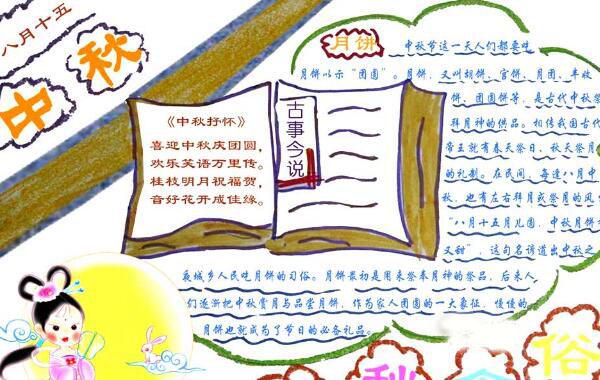 八月十五
中秋
《中秋抒怀》
喜迎中秋庆团圆，
欢乐笑语万里传。
桂枝明月祝福贺，
音好花开成佳缘。
古事今说
月饼 中秋节这一天人们都要吃
月饼以示“团圆”。月饼，又叫胡饼、宫饼、月团、丰收
饼、团圆饼等，是古代中秋祭
拜月神的供品。相传我国古代
帝王就有春天祭日、秋天祭月
的礼制。在民间，每逢八月中
秋，也有左右拜月或祭月的风
“八月十五月儿圆，中秋月饼
又甜”，这句名谚道出中秋之
夜城乡人民吃月饼的习俗。月饼最初是用来祭奉月神的祭品，后来人
们逐渐把中秋赏月与品尝月饼，作为家人团圆的一大象征，慢慢的
月饼也就成为了节日的必备礼品。
秋 俗